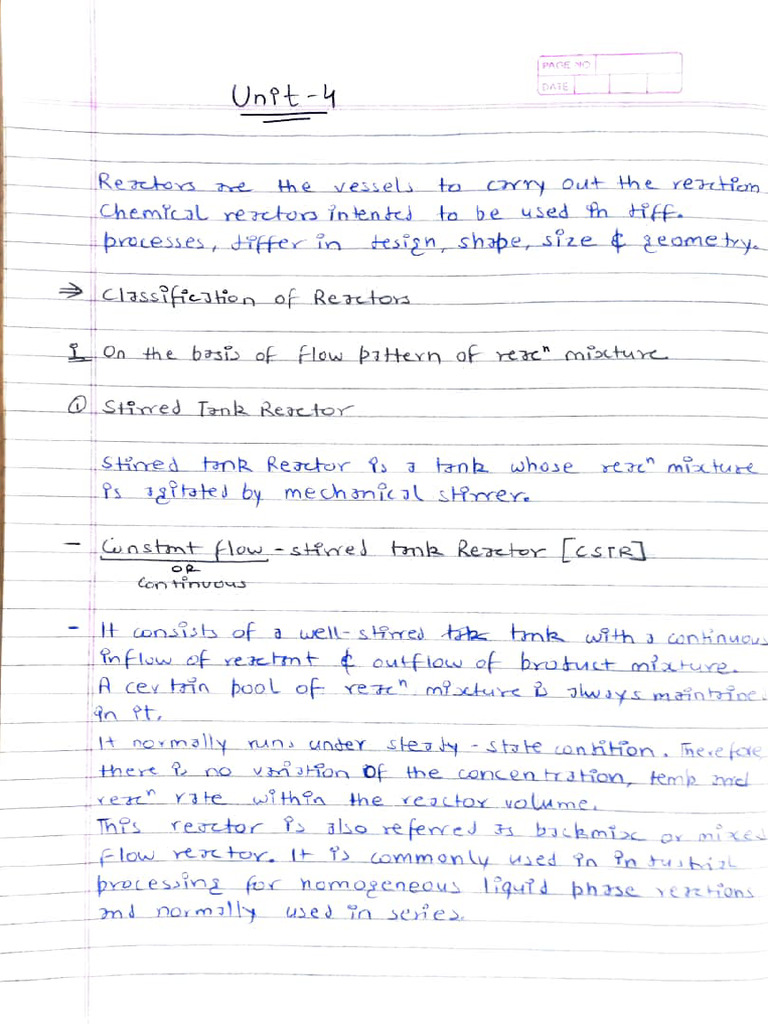 PAGE NO
DATE
Unit-4
Reactors are the vessels to carry out the reaction
Chemical reactors intented to be used in diff.
processes, differ in design, shape, size & geometry.
⇒ Classification of Reactors
I On the basis of flow pattern of reacⁿ mixture
① Stirred Tank Reactor
Stirred tank Reactor is a tank whose reacⁿ mixture
is agitated by mechanical stirrer.
- Constant flow - stirred tank Reactor [CSTR]
OR
Continuous
- It consists of a well-stirred tank with a continuous
inflow of reactant & outflow of product mixture.
A certain pool of reacⁿ mixture is always maintaine
in it.
It normally runs under steady-state condition. Therefore
there is no variation of the concentration, temp and
reacⁿ rate within the reactor volume.
This reactor is also referred as backmix or mixed
flow reactor. It is commonly used in industrial
processing for homogeneous liquid phase reactions
and normally used in series.